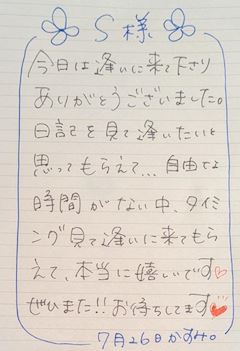 S様
今日は逢いに来て下さり
ありがとうございました。
日記を見て逢いたいと
思ってもらえて...自由な
時間がない中、タイミ
ング見て逢いに来てもら
えて、本当に嬉しいです♡
ぜひまた!!お待ちしてます♡
7月26日かすみ。